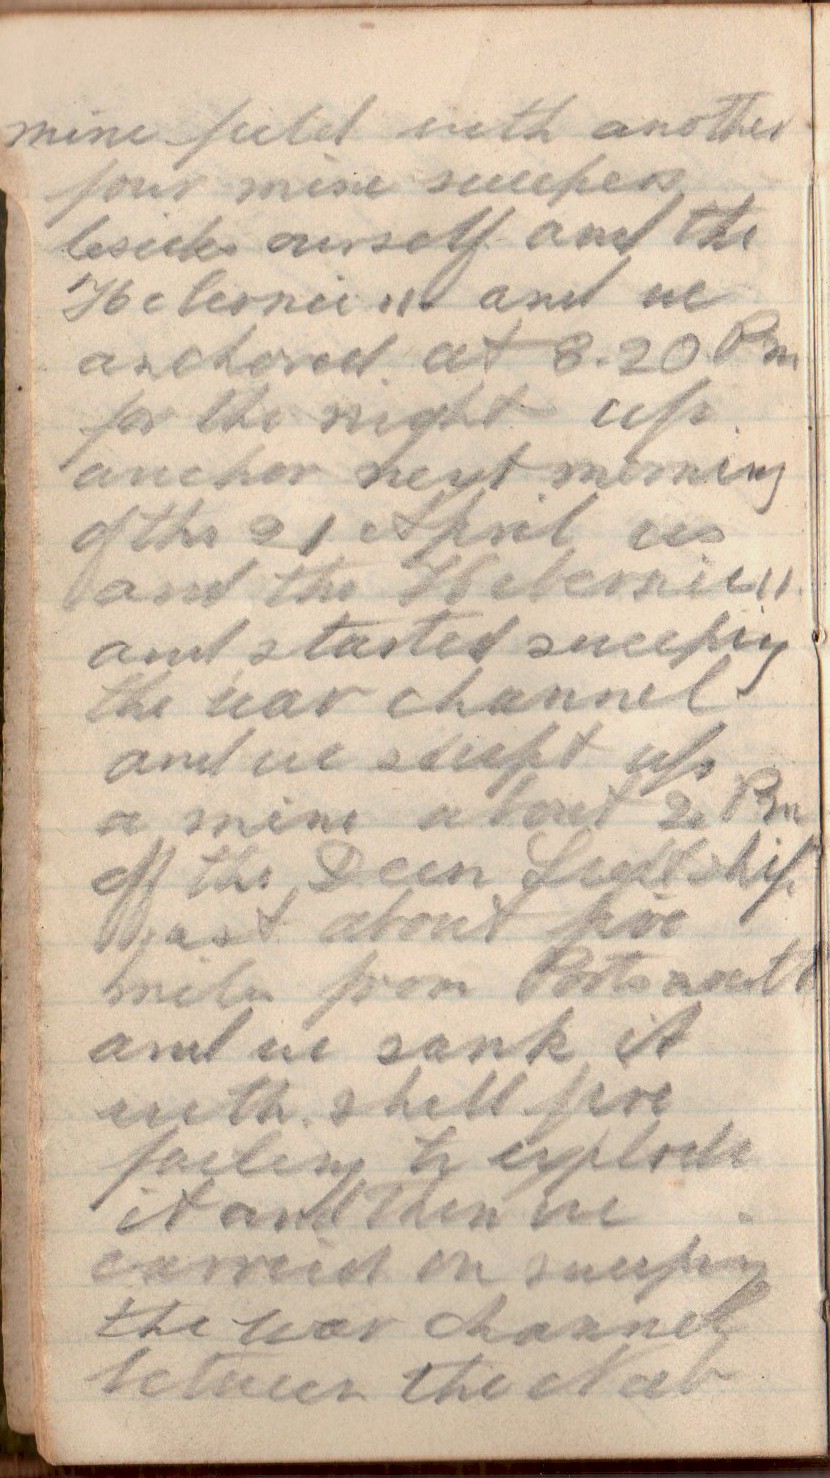 mine field with another
four mine sweepers
beside ourself and the
Hebernia 11. and we
anchored at 8.20 Pm
for the night up
anchor next morning
of the 21 April us
and the Hebernia 11.
and started sweeping
the war channel
and we swept up
a mine about 2. Pm
off the Deen Light ship
just about five
miles from Portsmouth
and we sank it
with shell fire
failing to explode
it and then we
carried on sweeping
the war channel
between the Nab